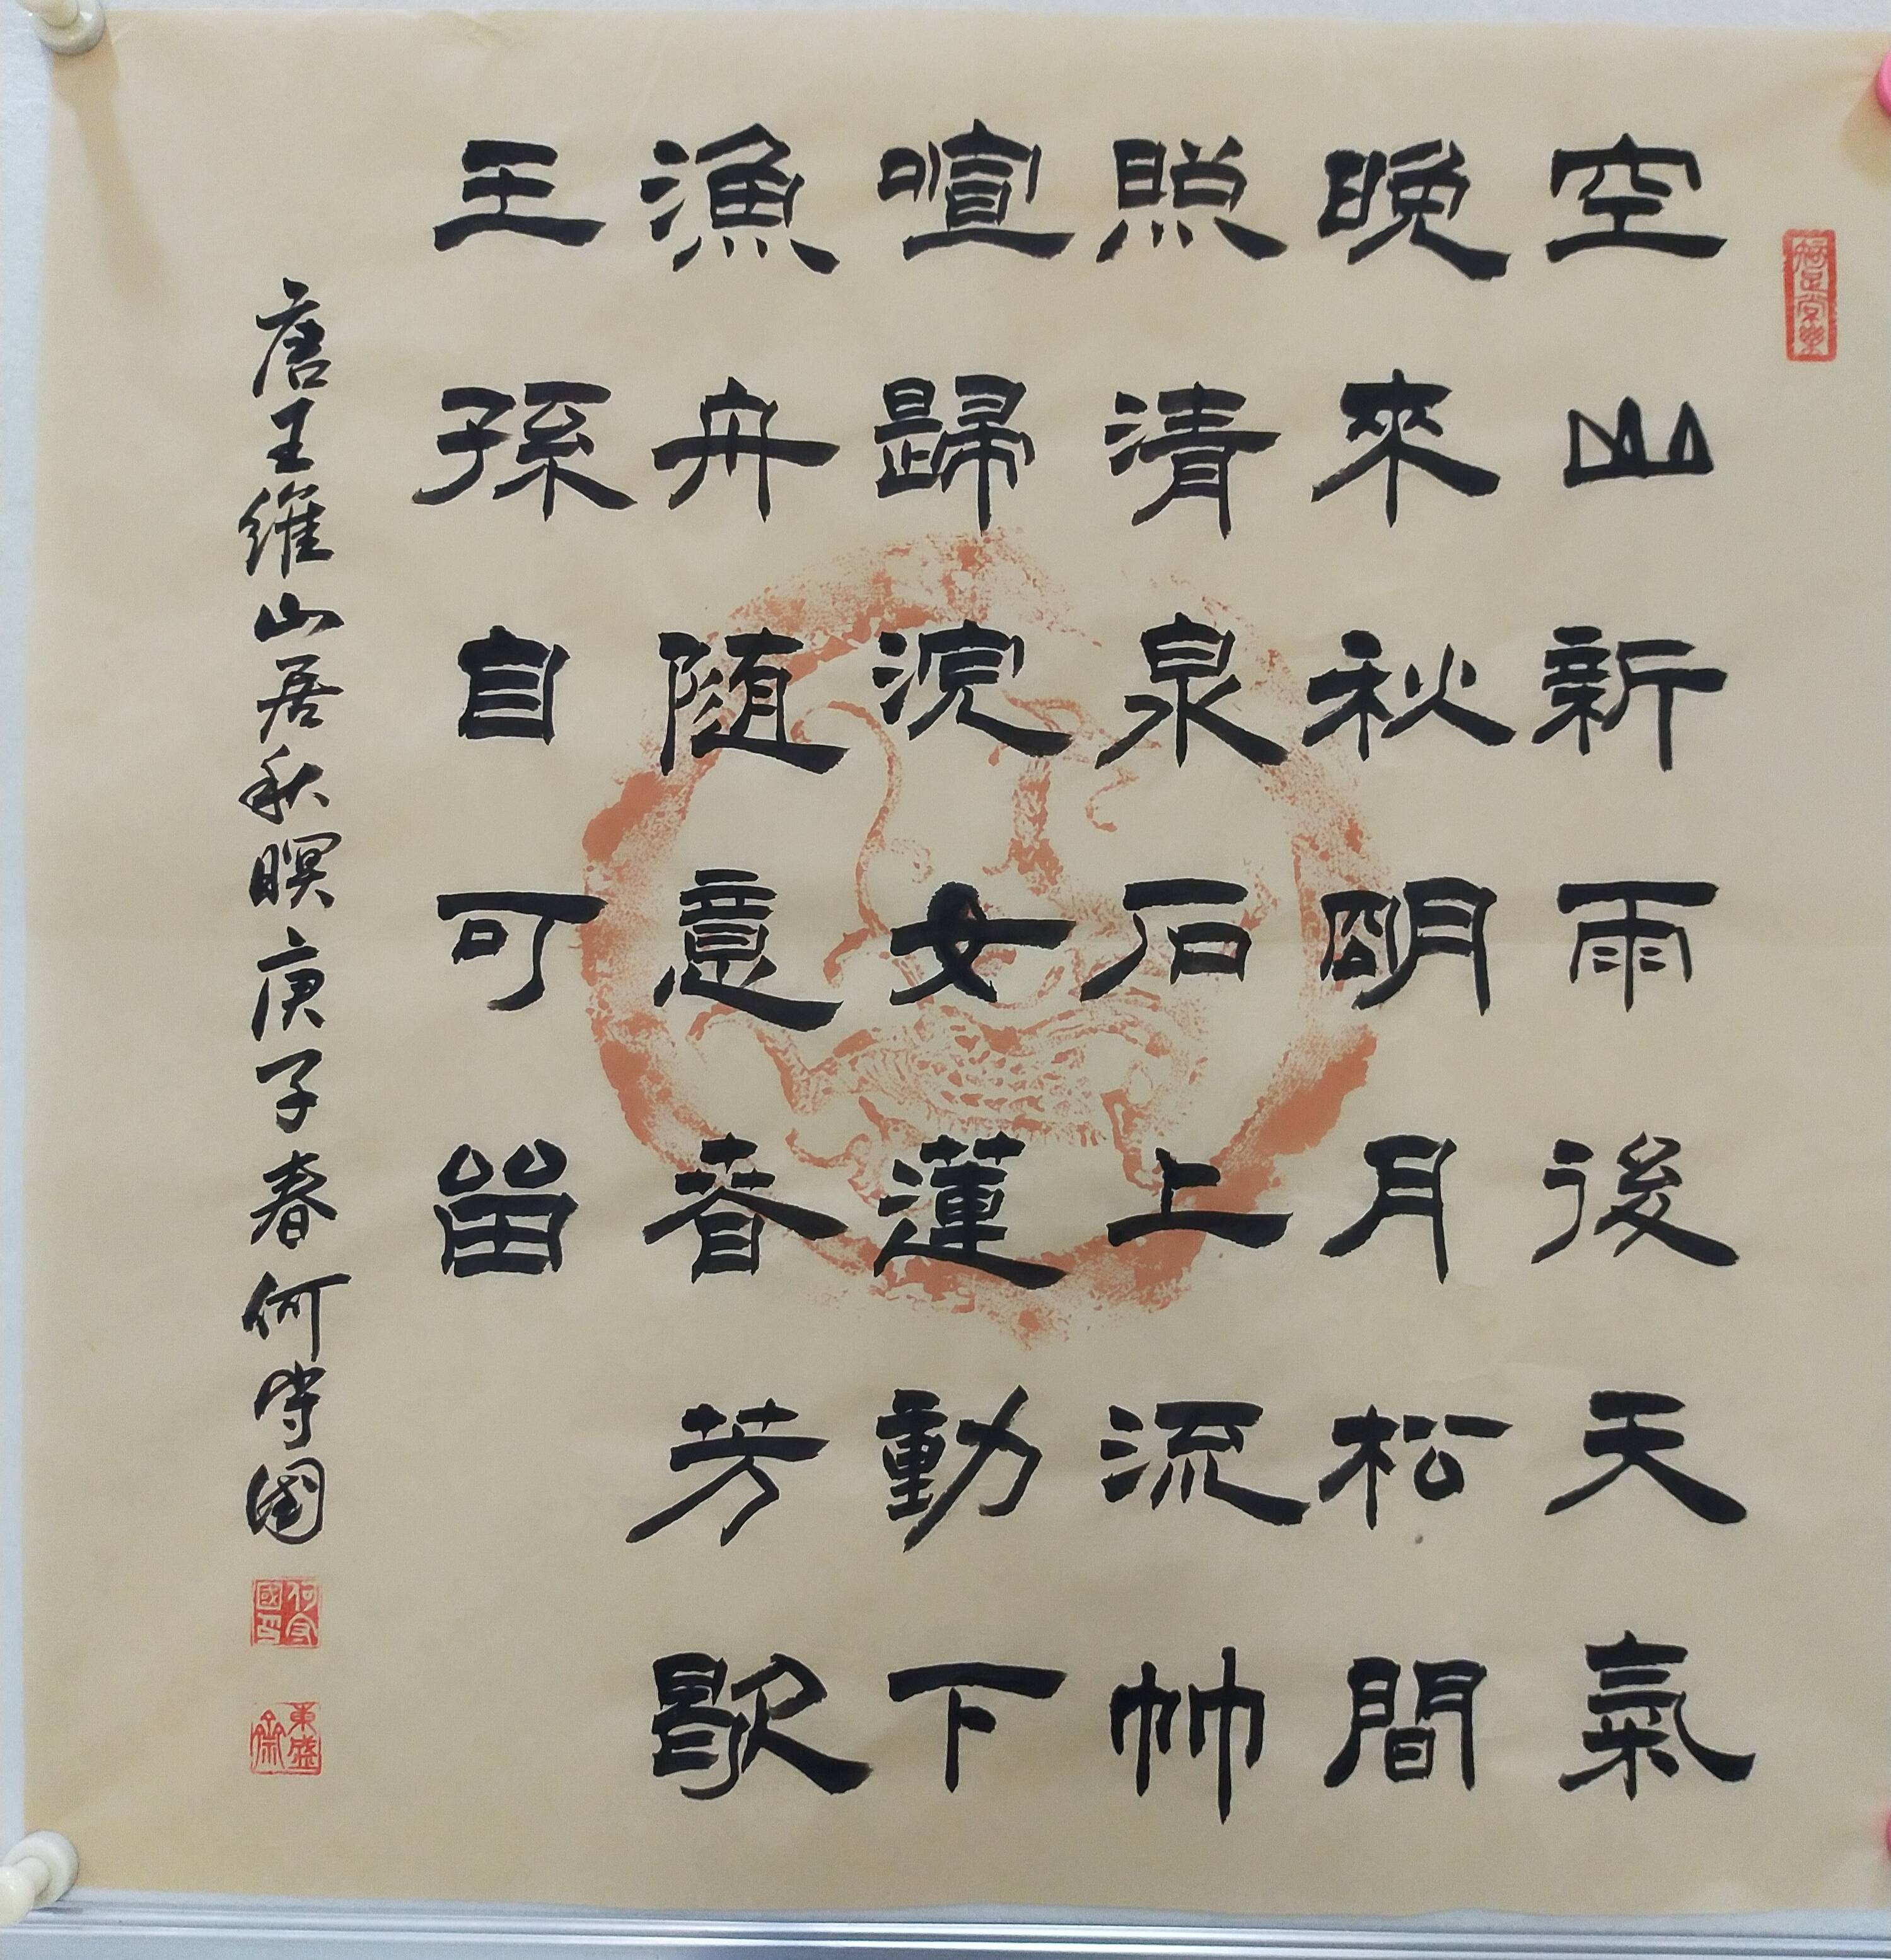 空山新雨後天氣
晚來秋明月松間
照清泉石上流竹
喧歸浣女蓮動下
漁舟随意春芳歇
王孫自可留
唐王維山居秋暝庚子春何守國
何守國印
東盛齋